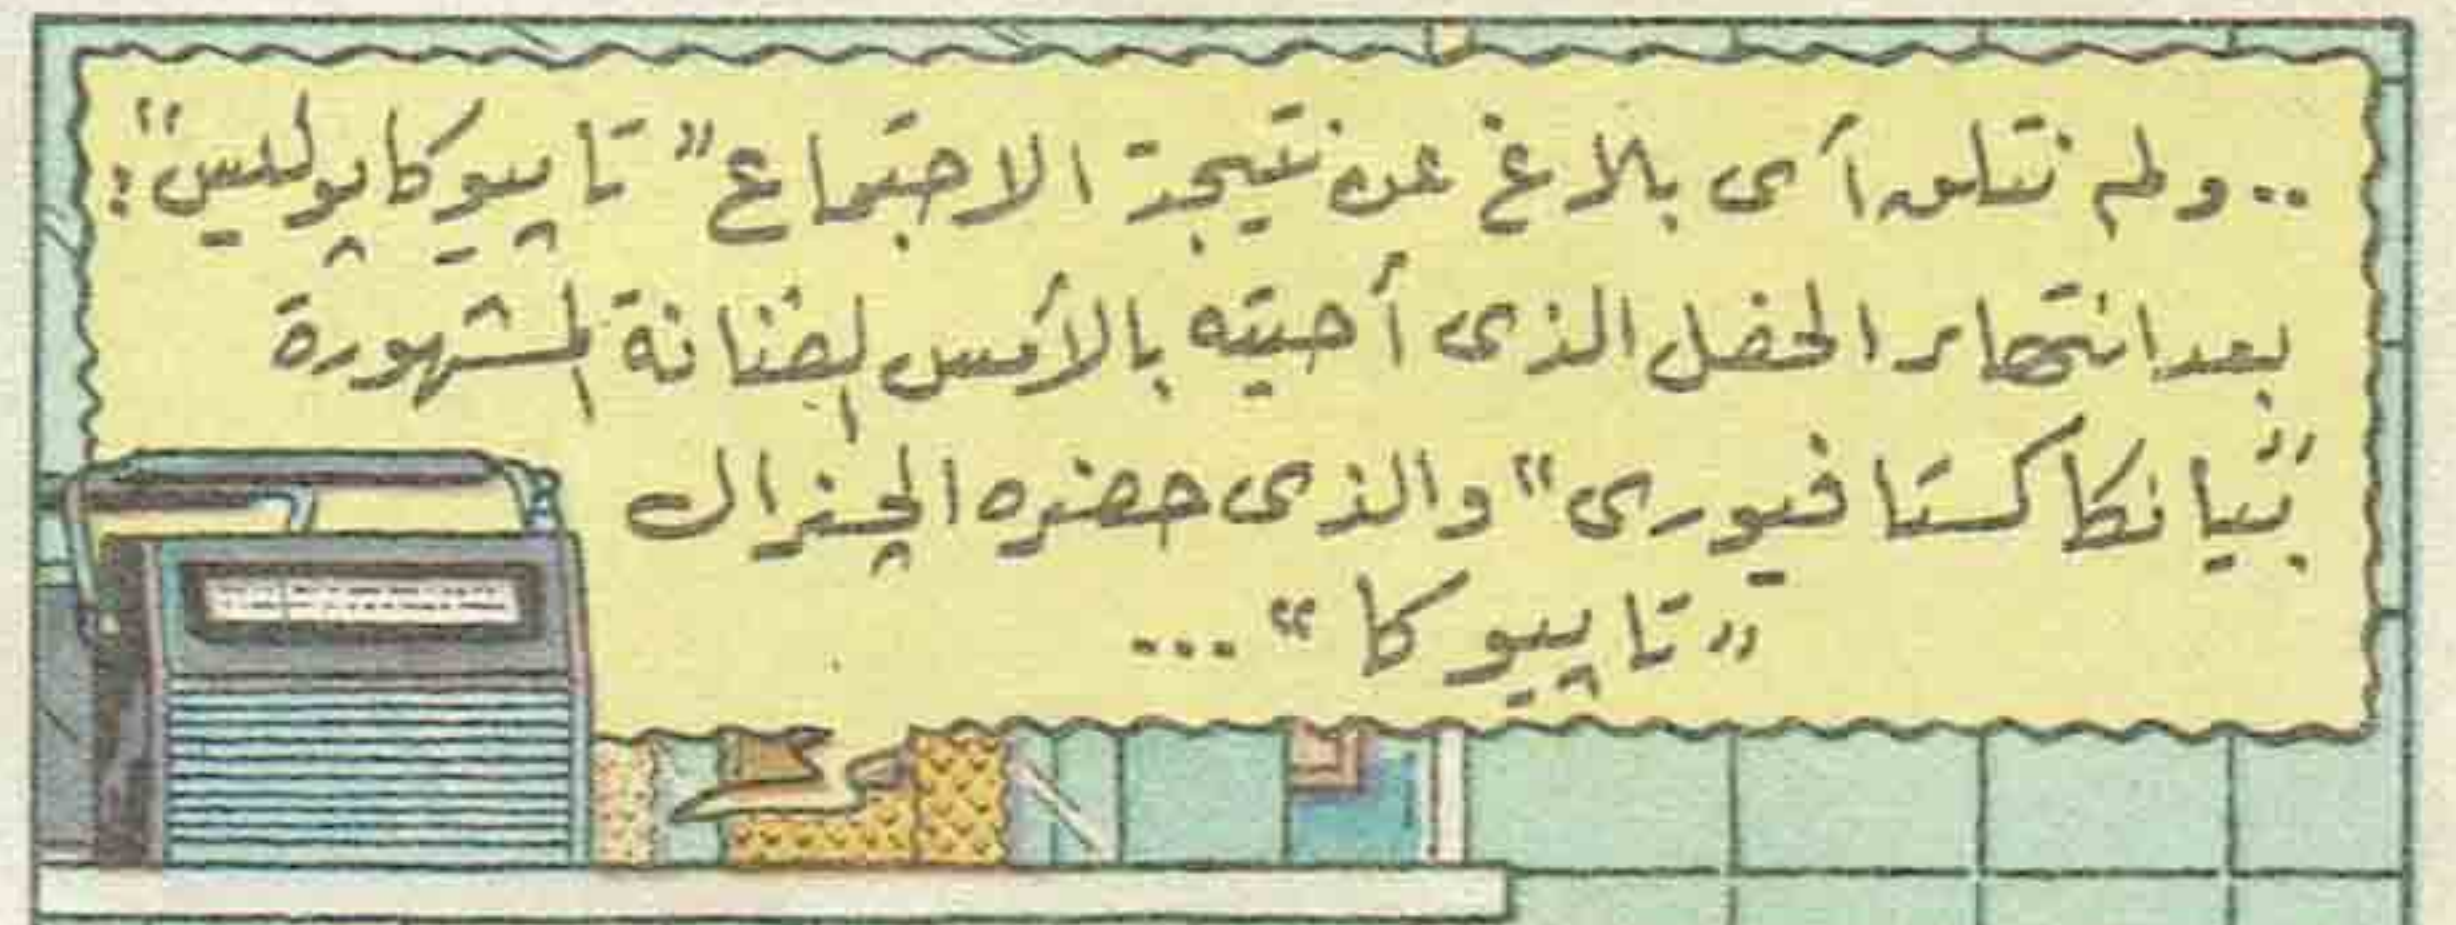 ..ولم نتلق أى بلاغ عن نتيجة الاجتماع "تاپيوكاپوليس":
بعد انتهاء الحفل الذى أحيته بالأمس الفنانة المشهورة
"بيانكا كستافيورى" والذى حضره الچنرال
"تاپيوكا"...